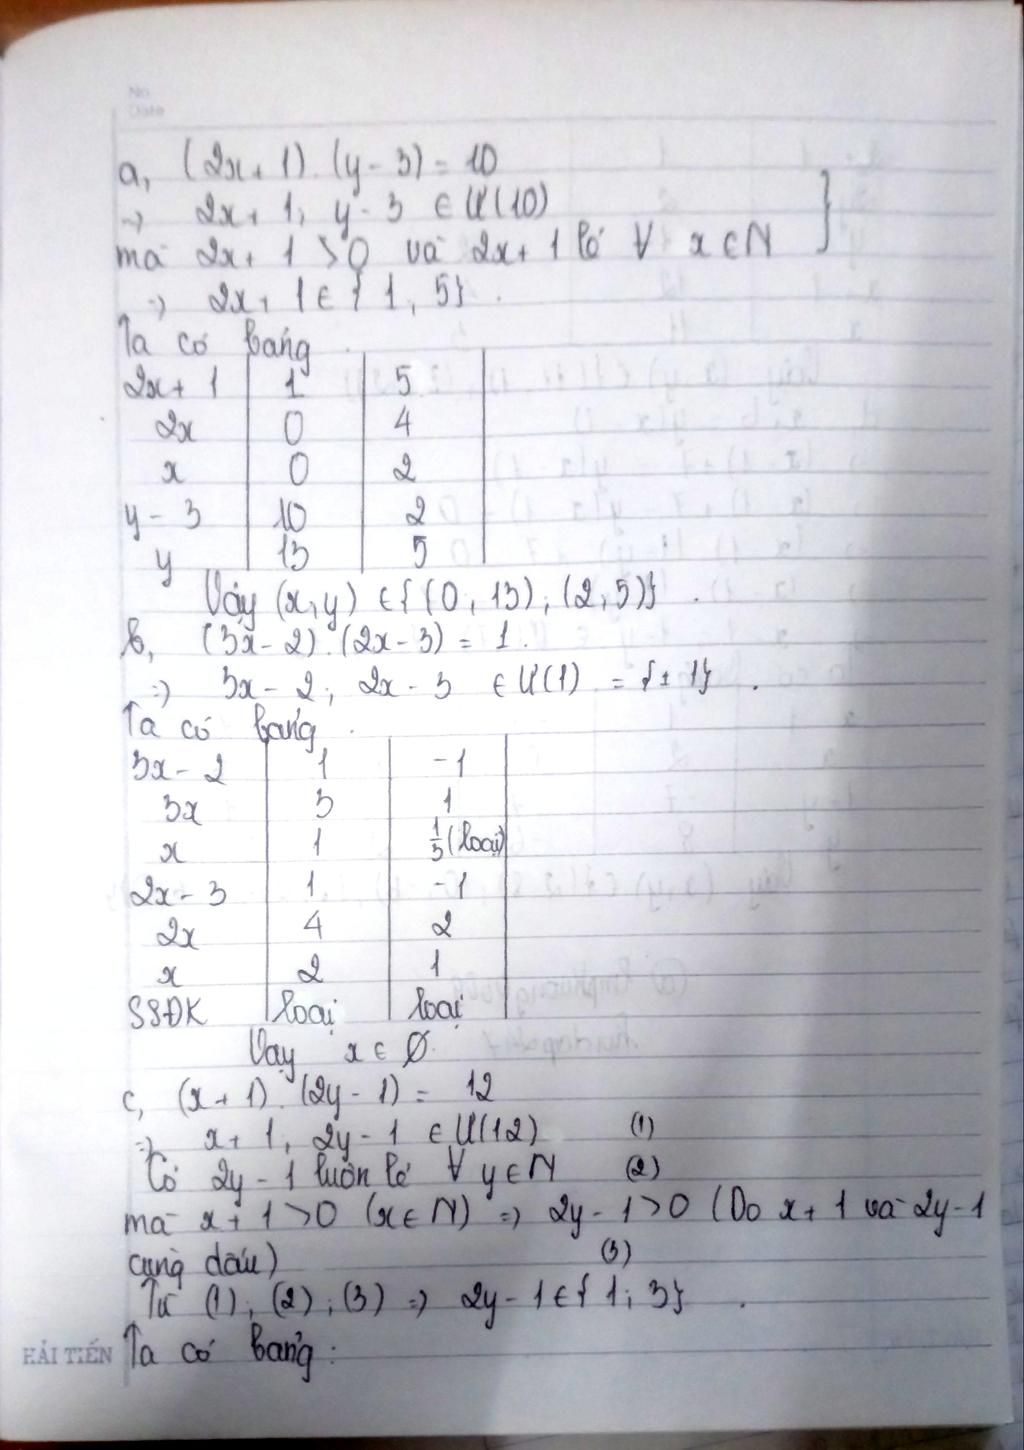 No
Date
a, (2x+1).(y-3) = 10
=> 2x+1; y-3 ∈ Ư(10)
mà 2x+1 >0 và 2x+1 lẻ ∀ x∈N
=> 2x+1 ∈ {1, 5}.
Ta có bảng
2x+1 | 1 | 5
2x | 0 | 4
x | 0 | 2
y-3 | 10 | 2
y | 13 | 5
Vậy (x,y) ∈ {(0; 13); (2; 5)}.
b, (3x-2).(2x-3) = 1.
=> 3x-2; 2x-3 ∈ Ư(1) = {±1}.
Ta có bảng.
3x-2 | 1 | -1
3x | 3 | 1
x | 1 | 1/3 (loại)
2x-3 | 1 | -1
2x | 4 | 2
x | 2 | 1
SSĐK | loại | loại
Vậy x ∈ Ø.
c, (x+1).(2y-1) = 12
=> x+1; 2y-1 ∈ Ư(12) (1)
Có 2y-1 luôn lẻ ∀ y∈N (2)
mà x+1 >0 (x∈N) => 2y-1 >0 (Do x+1 và 2y-1
cùng dấu) (3)
Từ (1); (2); (3) => 2y-1 ∈ {1; 3}.
HẢI TIẾN Ta có bảng: